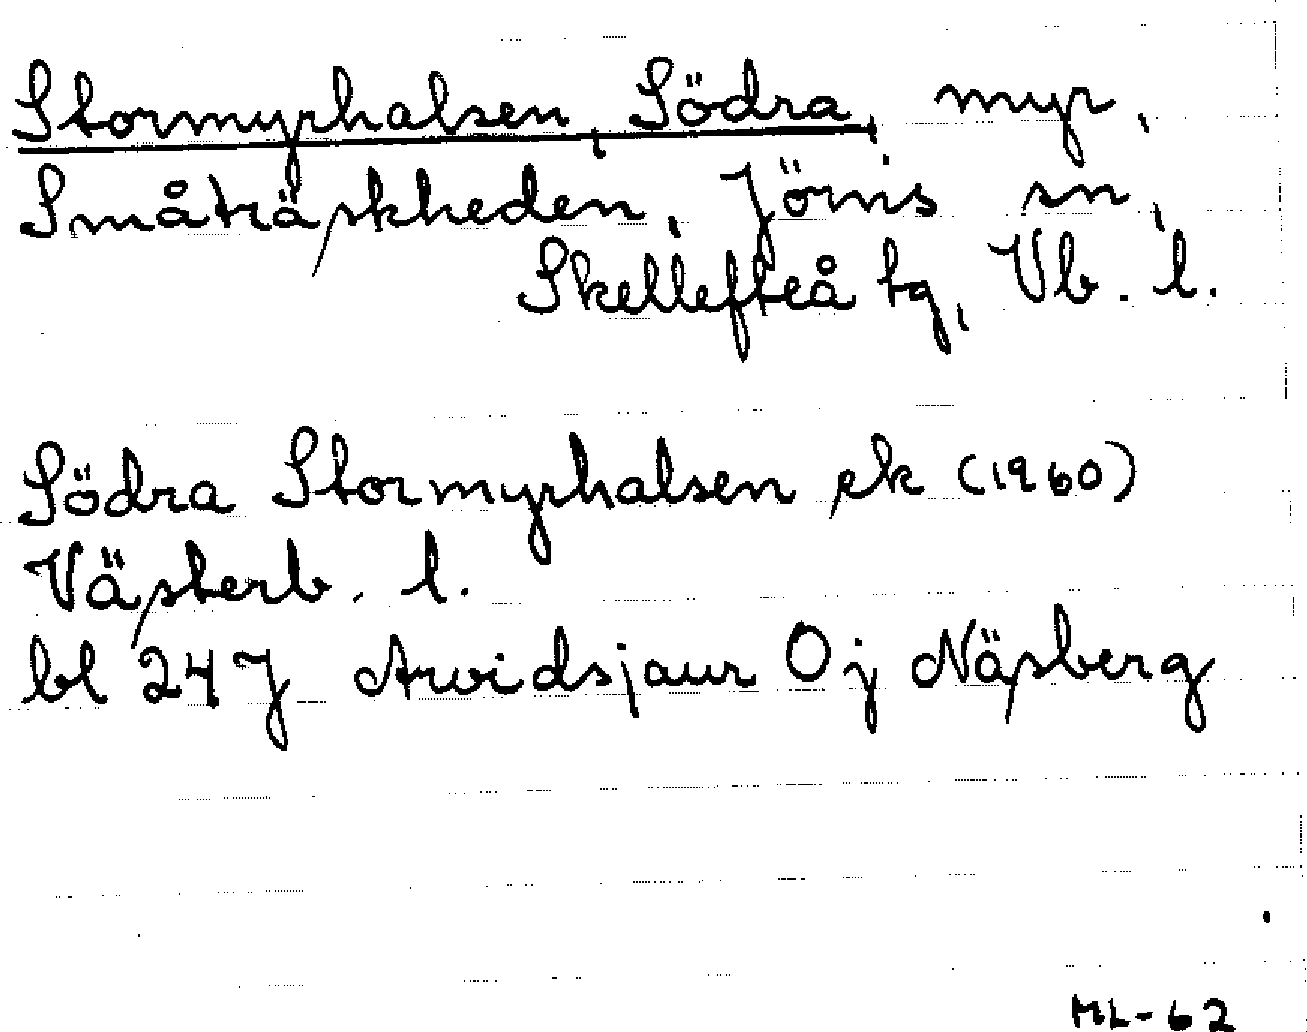 Stormyrhalsen, Södra, myr,
Småträskheden, Jörns sn,
Skellefteå tg, Vb. l.
Södra Stormyrhalsen ek (1960)
Västerb. l.
bl 24J Arvidsjaur Oj Näsberg
ML-62